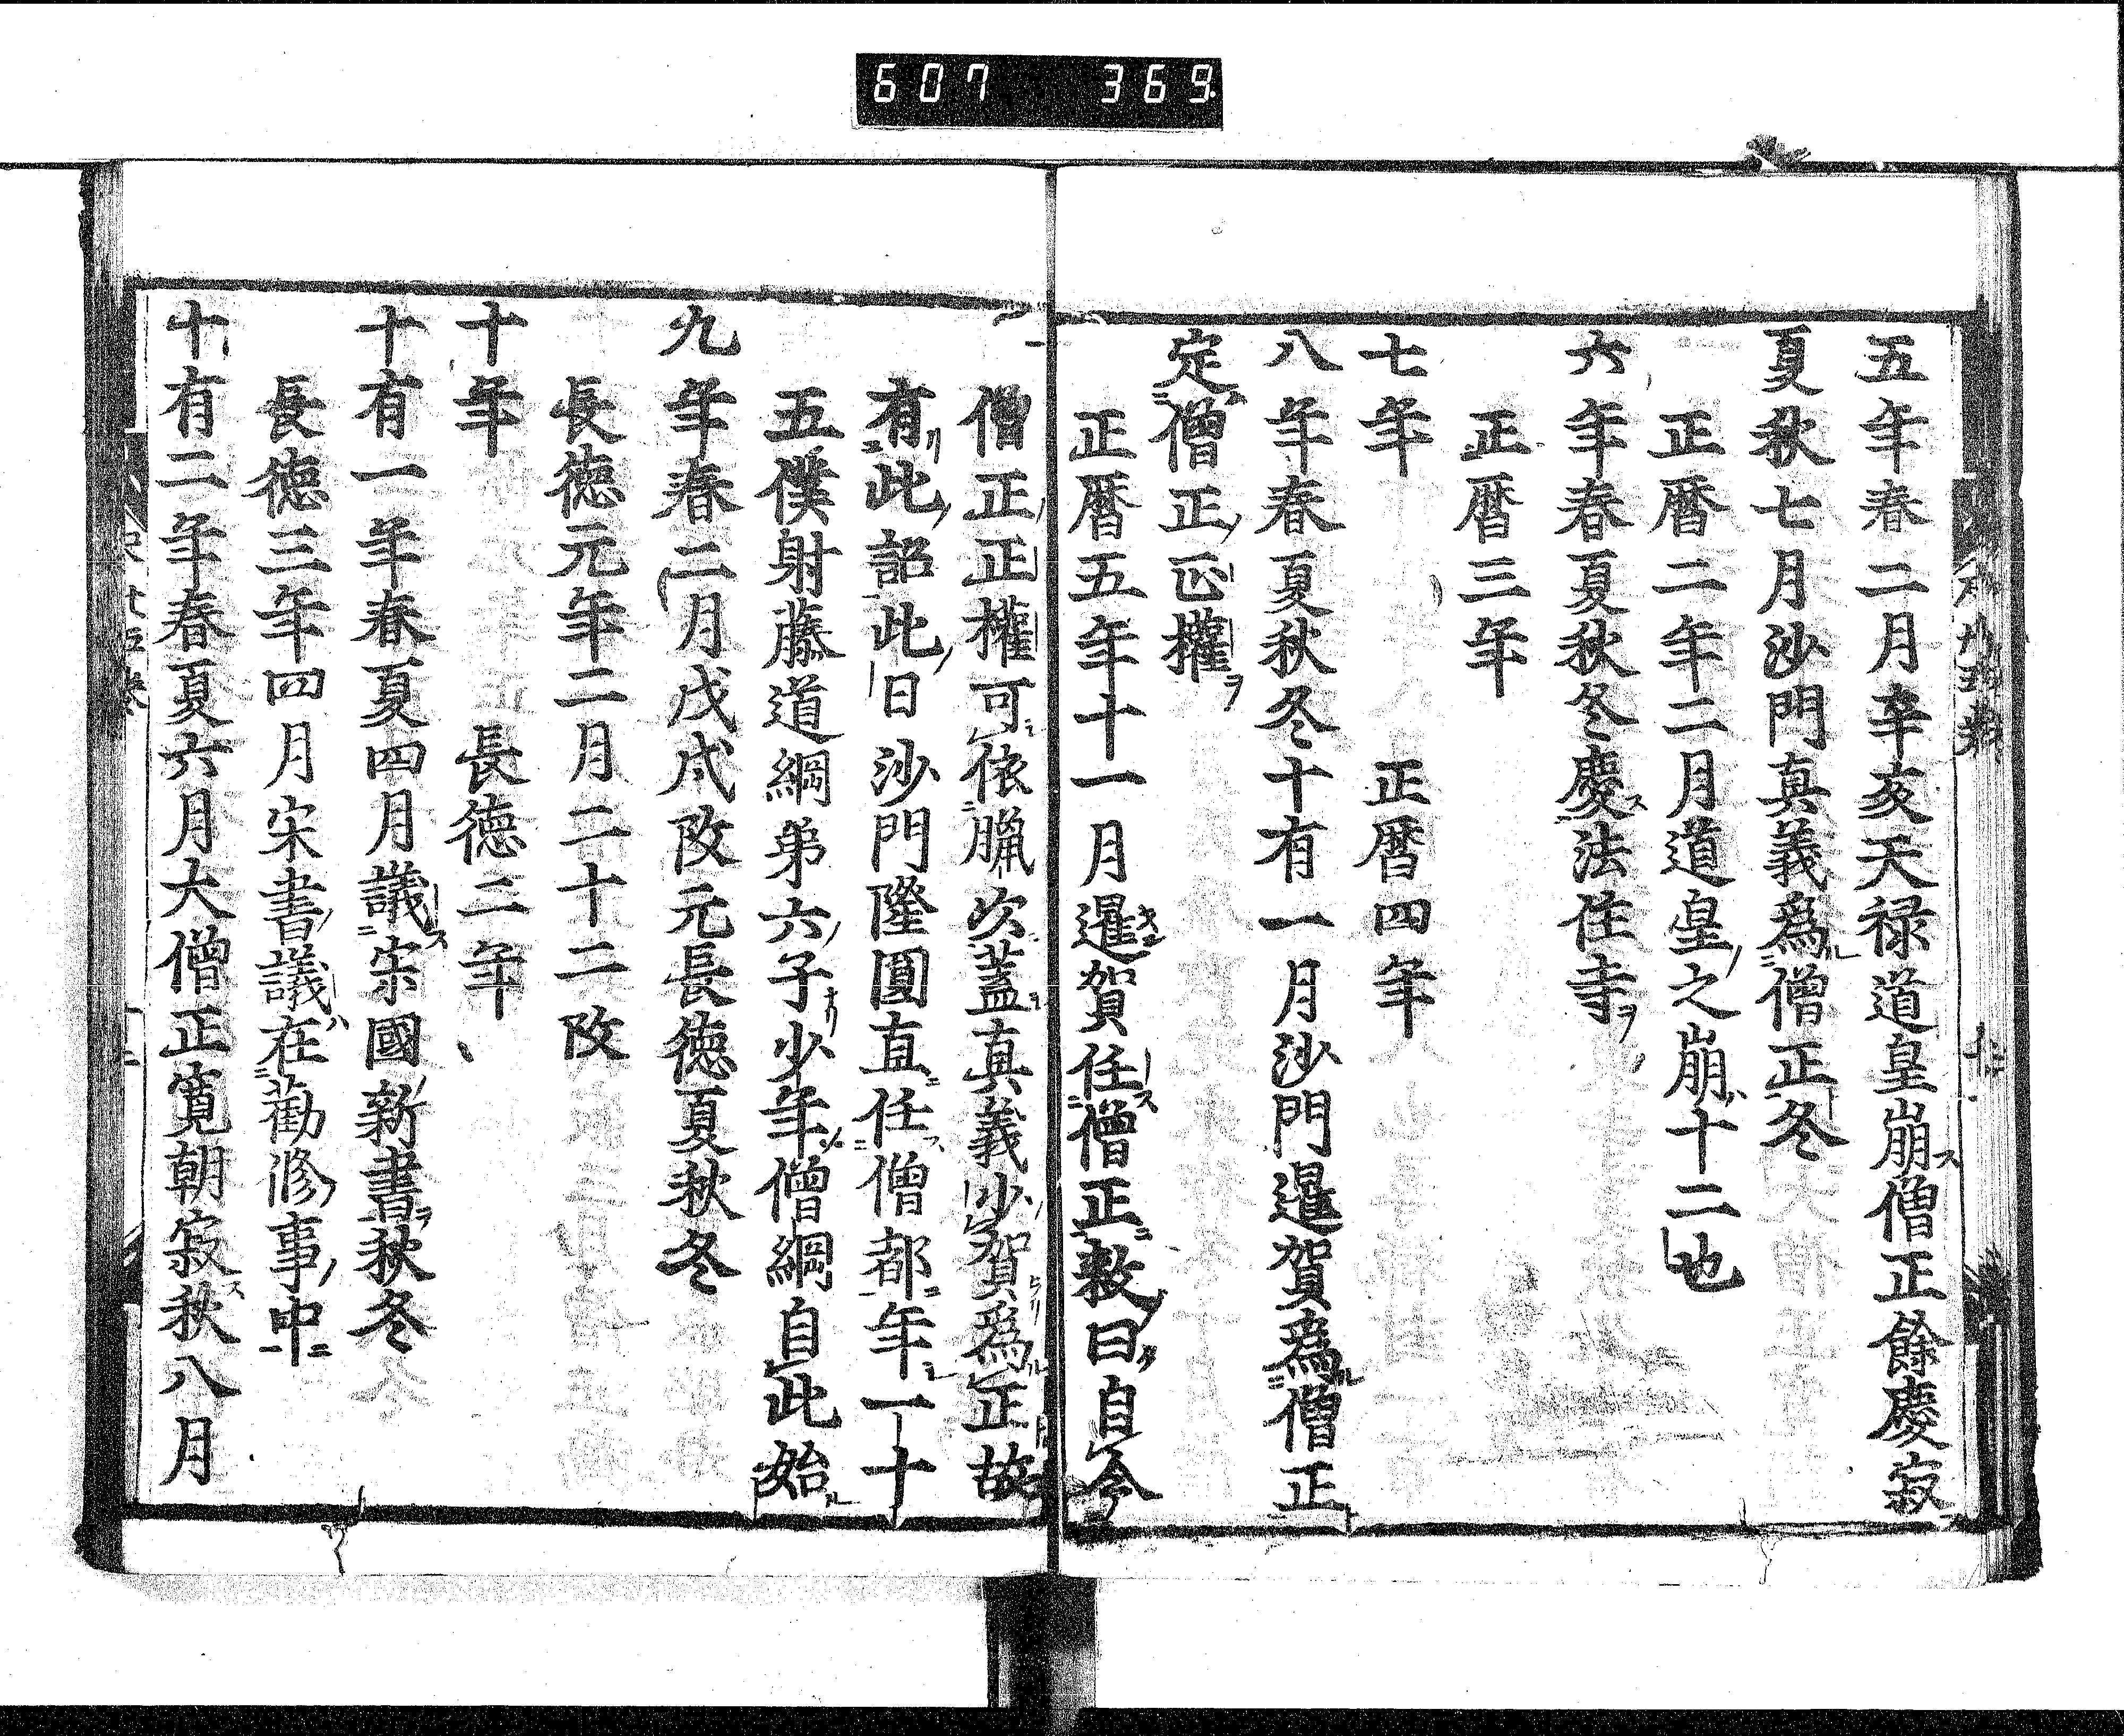 607 369
五年春二月辛亥天禄道皇崩僧正餘慶寂
夏秋七月沙門真義爲僧正冬
正暦二年二月道皇之崩十二也
六年春夏秋冬慶法住寺
正暦三年
七年 正暦四年
八年春夏秋冬十有一月沙門暹賀爲僧正
定僧正正權
正暦五年十一月暹賀任僧正敕曰自今
僧正正權可依臘次蓋真義少賀爲正故
有此詔此日沙門隆圓直任僧都年一十
五僕射藤道綱弟六子少年僧綱自此始
九年春二月戊戌改元長徳夏秋冬
長徳元年二月二十二改
十年 長徳二年
十有一年春夏四月議宋國新書秋冬
長徳三年四月宋書議在勸修事中
十有二年春夏六月大僧正寛朝寂秋八月